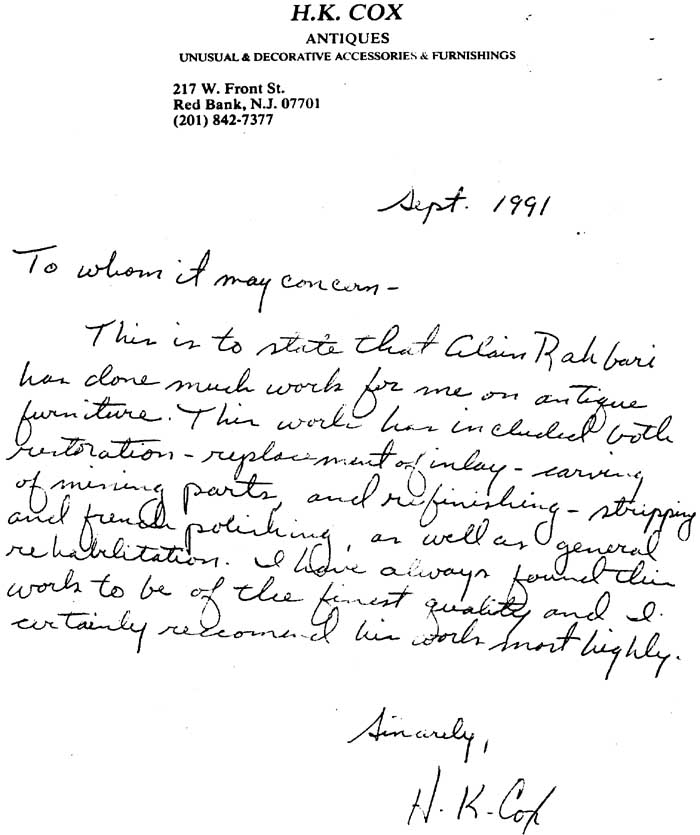 H.K. COX
ANTIQUES
UNUSUAL & DECORATIVE ACCESSORIES & FURNISHINGS
217 W. Front St.
Red Bank, N.J. 07701
(201) 842-7377
Sept. 1991
To whom it may concern -
This is to state that Alain Rahbari
has done much work for me on antique
furniture. This work has included both
restoration - replacement of inlay - carving
of missing parts, and refinishing - stripping
and french polishing, as well as general
rehabilitation. I have always found this
work to be of the finest quality and I
certainly reccomend his work most highly.
Sincerely,
H. K. Cox